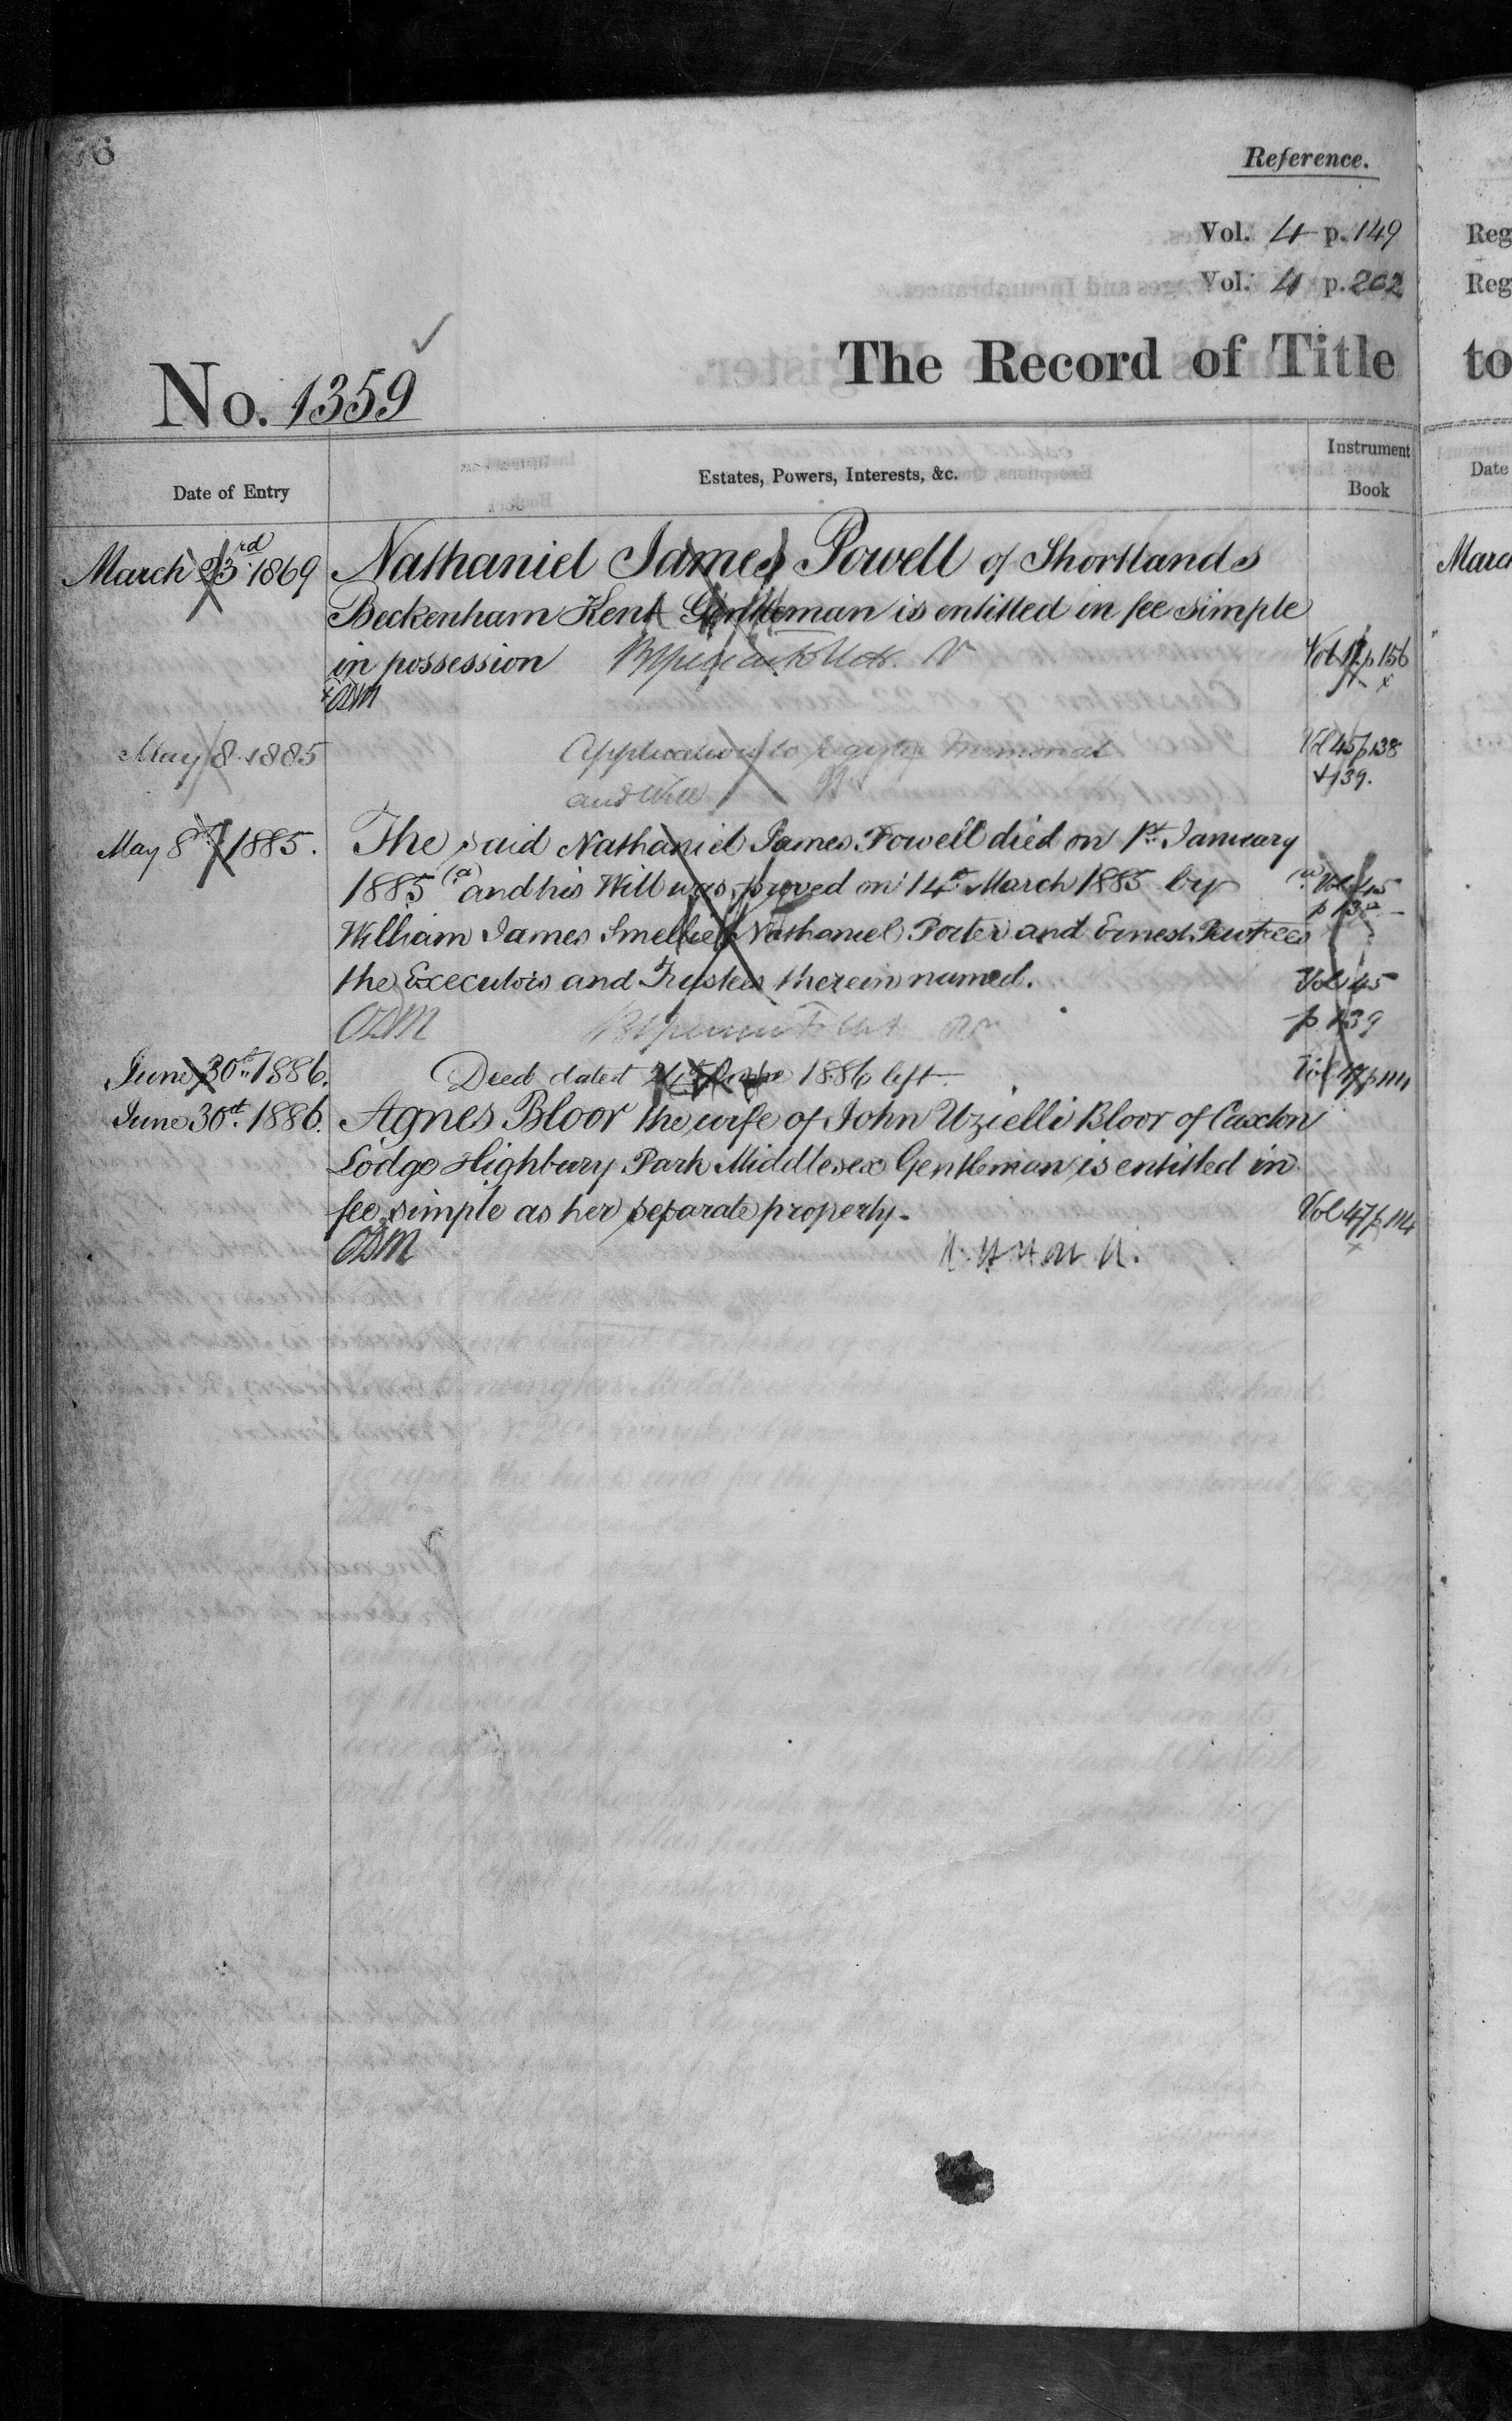 Reference.
Vol. 4 p. 149
Vol. 4 p. 202
No. 1359
The Record of Title
Date of Entry
Estates, Powers, Interests, &c.
Instrument
Book
March 23rd 1869
Nathaniel James Powell of Shortlands
Beckenham Kent Gentleman is entitled in fee simple
in possession
p 156
May 8 1885
Application to register Memorial
and Will
Vol 45 p 138
+ 139.
May 8th 1885.
The said Nathaniel James Powell died on 1st January
1885 (a) and his Will was proved on 14th March 1885 by
(a) Vol 45
William James Smellie Nathaniel Porter and Ernest
the Executors and Trustees therein named.
Vol 45
p 139
June 30th 1886.
Deed dated 1886 left.
June 30th 1886.
Agnes Bloor the wife of John Uzielli Bloor of Caxton
Lodge Highbury Park Middlesex Gentleman is entitled in
fee simple as her separate property.
Vol 47 p 114
Reg
Reg
to
Date
Marc